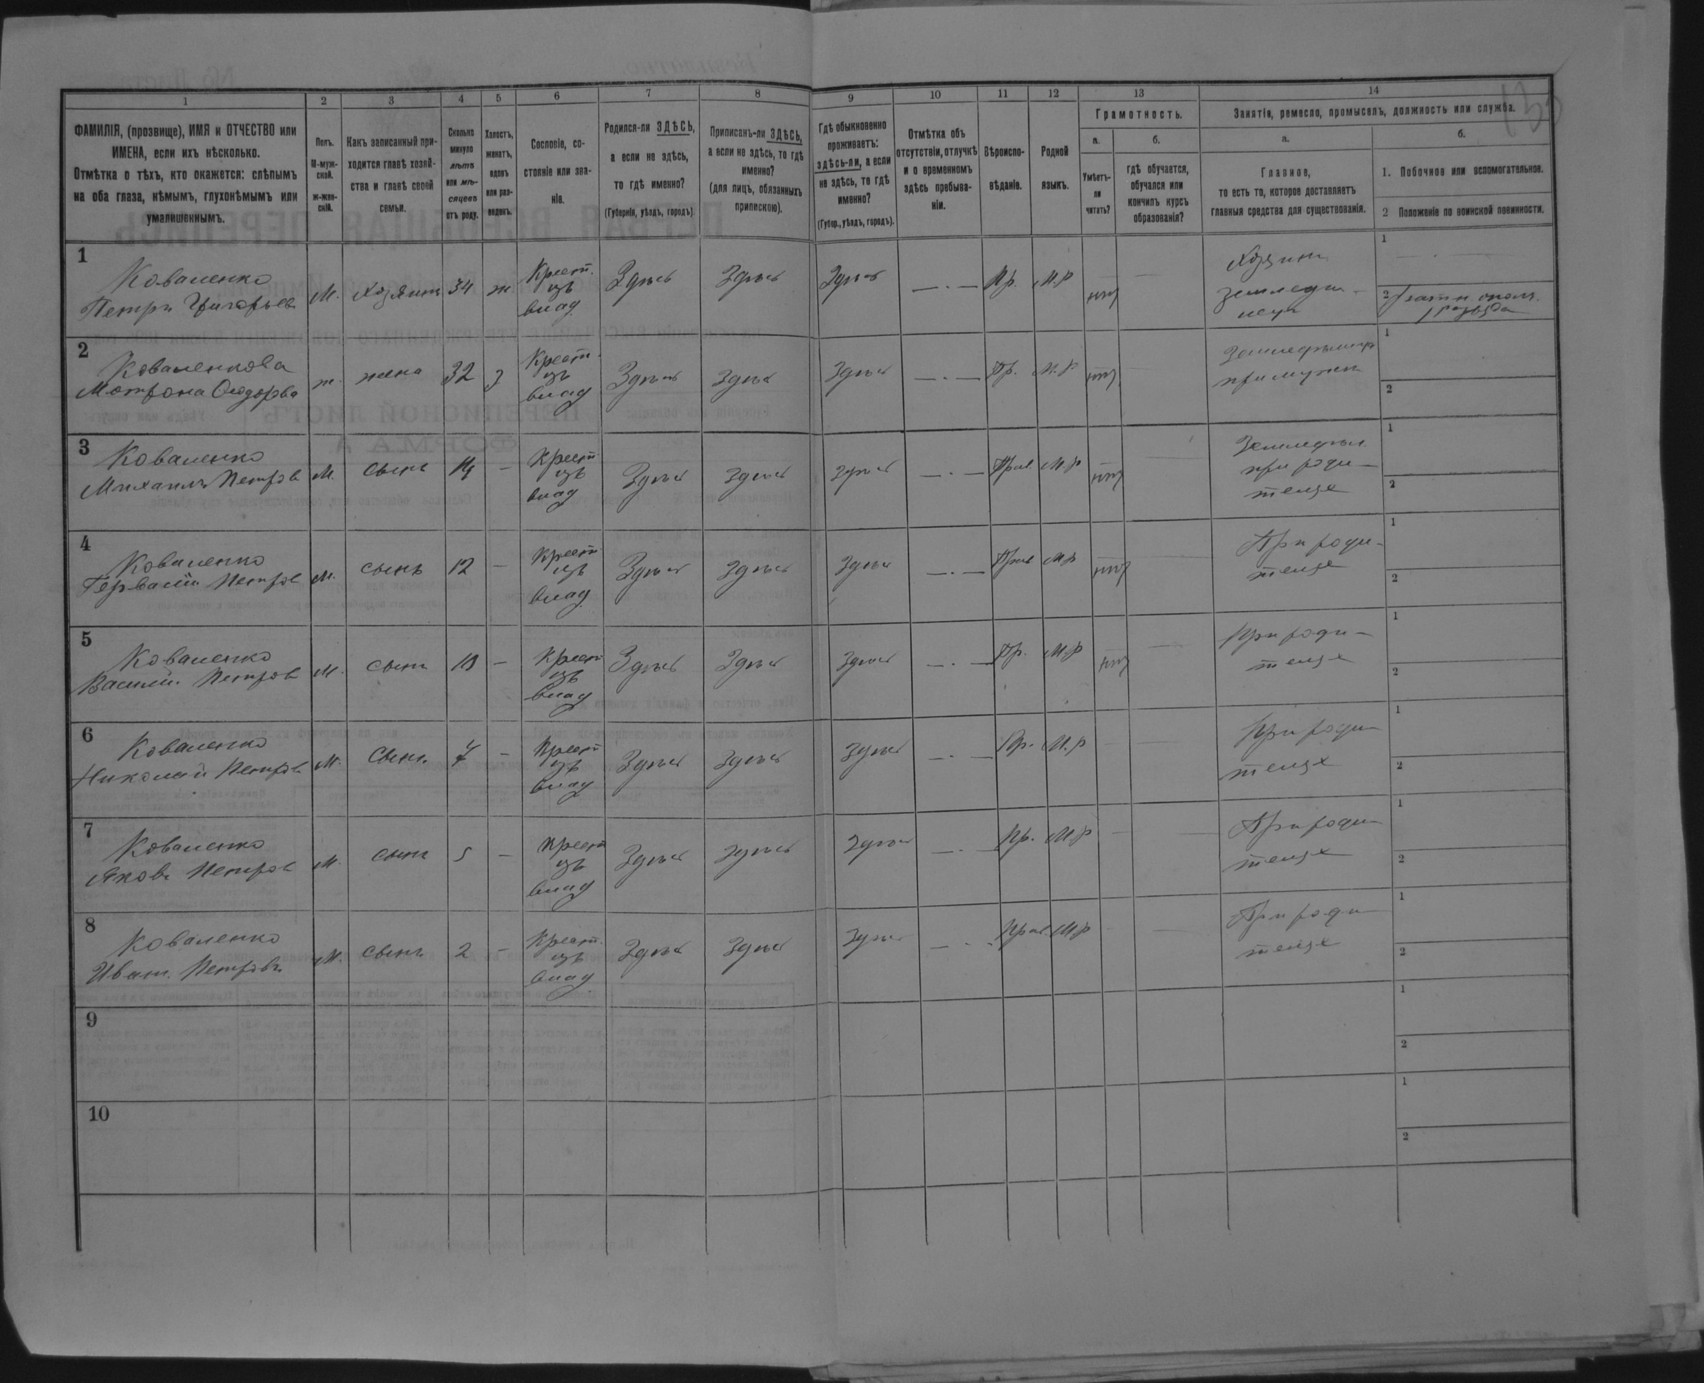 1 2 3 4 5 6 7 8 9 10 11 12 13 14
ФАМИЛІЯ, (прозвище), ИМЯ и ОТЧЕСТВО или
ИМЕНА, если ихъ нѣсколько.
Отмѣтка о тѣхъ, кто окажется: слѣпымъ
на оба глаза, нѣмымъ, глухонѣмымъ или
умалишеннымъ.
Полъ.
М-муж-
ской.
ж-жен-
скій.
Какъ записанный при-
ходится главѣ хозяй-
ства и главѣ своей
семьи.
Сколько
минуло
лѣтъ
или мѣ-
сяцевъ
отъ роду.
Холостъ,
женатъ,
вдовъ
или раз-
веденъ.
Сословіе, со-
стояніе или зва-
ніе.
Родился-ли ЗДѢСЬ,
а если не здѣсь,
то гдѣ именно?
(Губернія, уѣздъ, городъ).
Приписанъ-ли ЗДѢСЬ,
а если не здѣсь, то гдѣ
именно?
(для лицъ, обязанныхъ
припискою).
Гдѣ обыкновенно
проживаетъ:
здѣсь-ли, а если
не здѣсь, то гдѣ
именно?
(Губер., уѣздъ, городъ).
Отмѣтка объ
отсутствіи, отлучкѣ
и о временномъ
здѣсь пребыва-
ніи.
Вѣроиспо-
вѣданіе.
Родной
языкъ.
Грамотность.
а.
Умѣетъ-
ли
читать?
б.
гдѣ обучается,
обучался или
кончилъ курсъ
образованія?
Занятія, ремесло, промыселъ, должность или служба.
а.
Главное,
то есть то, которое доставляетъ
главныя средства для существованія.
б.
1. Побочное или вспомогательное.
2 Положеніе по воинской повинности.
1
Коваленко
Петръ Григорьев
М. хозяинъ 34 ж
Крест.
изъ
влад
Здѣсь Здѣсь Здѣсь — . — Пр. М.р нѣт
Хозяинъ
земледѣ-
лецъ
1
2
1 разряда
2
Коваленкова
Мотрона Федорова
ж. жена 32 з
Крест.
изъ
влад
Здѣсь Здѣсь Здѣсь — . — Пр. М.р нѣт
Земледѣлица
при мужѣ
1
2
3
Коваленко
Михаилъ Петров
М. сынъ 14 —
Крест
изъ
влад
Здѣсь Здѣсь Здѣсь — . — Прав М.р нѣт
Земледѣл
при роди-
теляхъ
1
2
4
Коваленко
Гервасій Петров
М. сынъ 12 —
Крест
изъ
влад
Здѣсь Здѣсь Здѣсь — . — Прав М.р нѣт
При роди-
теляхъ
1
2
5
Коваленко
Василій Петров
М. сынъ 10 —
Крест
изъ
влад
Здѣсь Здѣсь Здѣсь — . — Пр. М.р нѣт
При роди-
теляхъ
1
2
6
Коваленко
Николай Петров
М. сынъ 7 —
Крест
изъ
влад
Здѣсь Здѣсь Здѣсь — . — Пр. М.р
При роди
теляхъ
1
2
7
Коваленко
Яковъ Петров
М. сынъ 5 —
Крест
изъ
влад
Здѣсь Здѣсь Здѣсь — . — Пр. М.р
При роди
теляхъ
1
2
8
Коваленко
Иванъ Петровъ
М. сынъ 2 —
Крест.
изъ
влад
Здѣсь Здѣсь Здѣсь — . — Прав. М.р
При роди
теляхъ
1
2
9
1
2
10
1
2